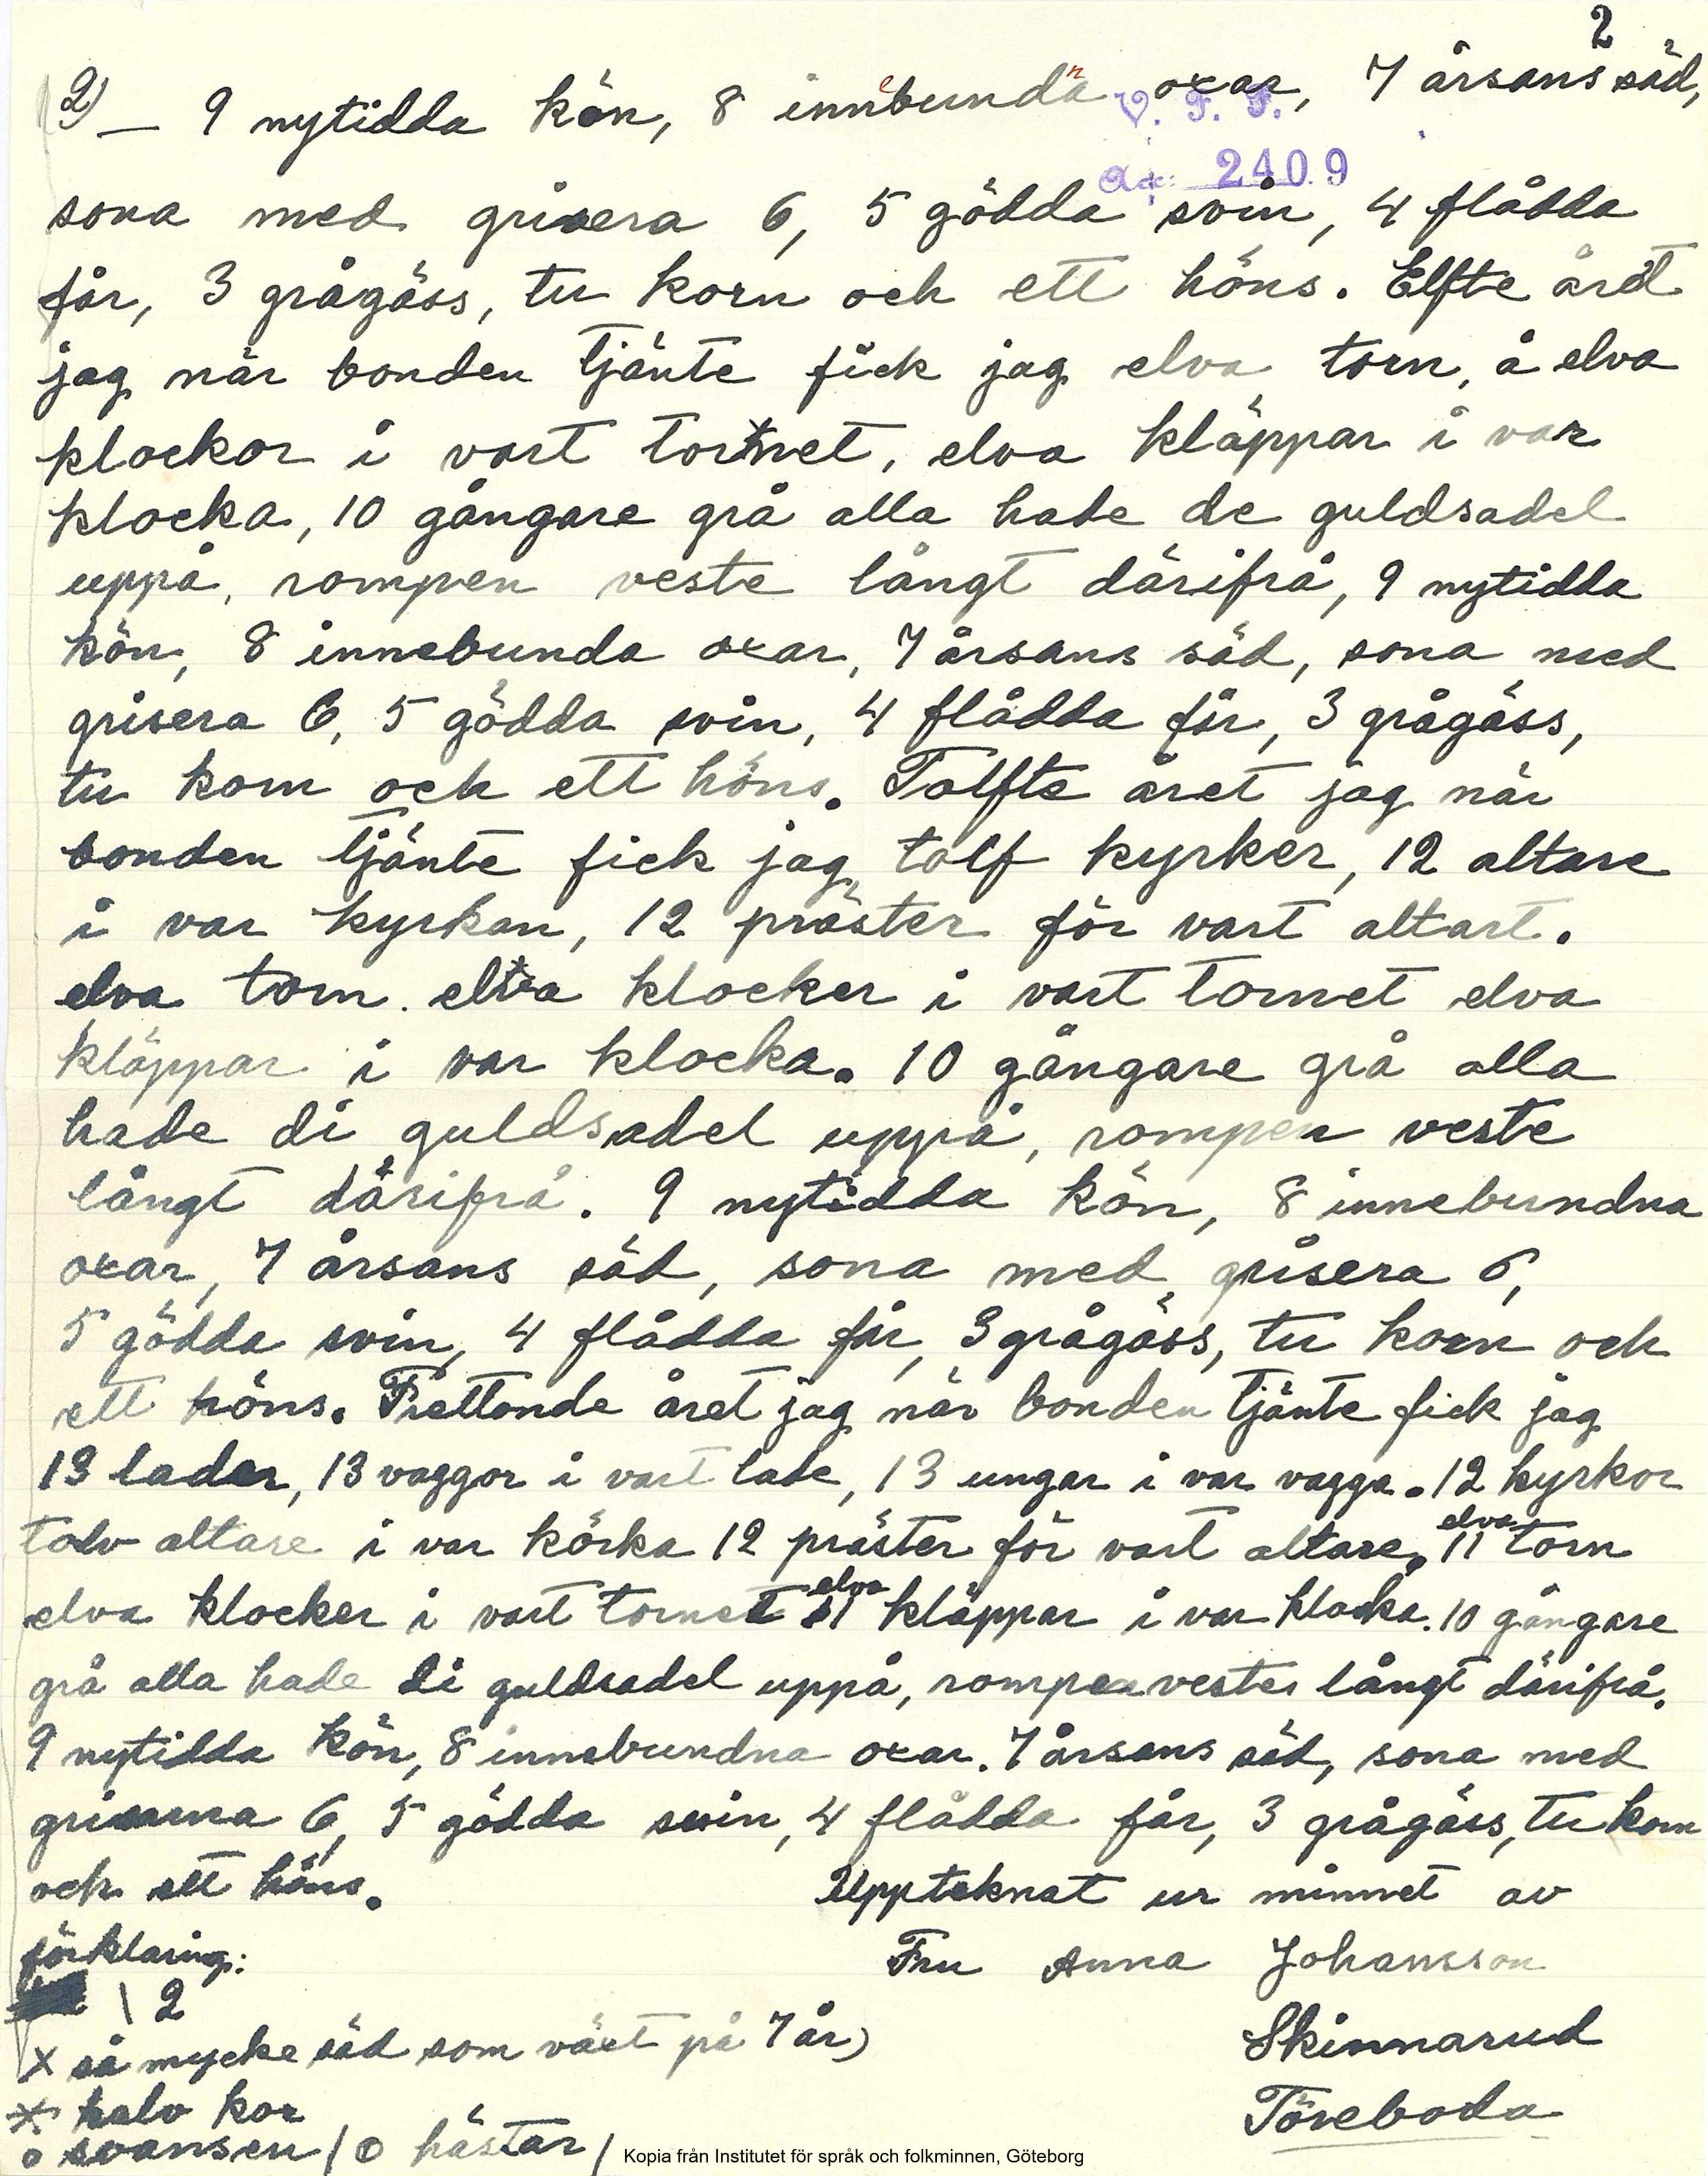 2
2) — 9 nytidda kön, 8 innebundn oxar, 7 årsans säd,
V. F. F.
Acc: 2409
sona med grisera 6, 5 gödda svin, 4 flådda
får, 3 grågäss, tu korn och ett höns. Elfte året
jag när bonden tjänte fick jag elva torn, å elva
klockor i vart tornet, elva kläppar i var
klocka, 10 gångare grå alla hade de guldsadel
uppå, rompen veste långt därifrå, 9 nytidda
kön, 8 innebunda oxar, 7 årsans säd, sona med
grisera 6, 5 gödda svin, 4 flådda får, 3 grågäss,
tu korn och ett höns. Tolfte året jag när
bonden tjänte fick jag tolf kyrker, 12 altare
i var kyrkan, 12 präster för vart altart.
elva torn. elva klocker i vart tornet elva
kläppar i var klocka. 10 gångare grå alla
hade di guldsadel uppå, rompen veste
långt därifrå. 9 nytidda kön, 8 innebundna
oxar, 7 årsans säd, sona med grisera 6,
5 gödda svin, 4 flådda får, 3 grågäss, tu korn och
ett höns. Trettonde året jag när bonden tjänte fick jag
13 lader, 13 vaggor i vart lade, 13 ungar i var vagga. 12 kyrkor
tolv altare i var körka 12 präster för vart altare. 11 elva torn
elva klocker i vart tornet 11 elva kläppar i var klocka. 10 gångare
grå alla hade di guldsadel uppå, rompen vester långt därifrå.
9 nytidda kön, 8 innebundna oxar. 7 årsans säd, sona med
6, 5 gödda svin, 4 flådda får, 3 grågäss, tu korn
och ett höns. Uppteknat ur minnet av
förklaring: Fru Anna Johansson
\ 2
x så mycke säd som växt på 7 år) Skinnarud
x kalv kor Töreboda
o svansen / o hästar /
Kopia från Institutet för språk och folkminnen, Göteborg